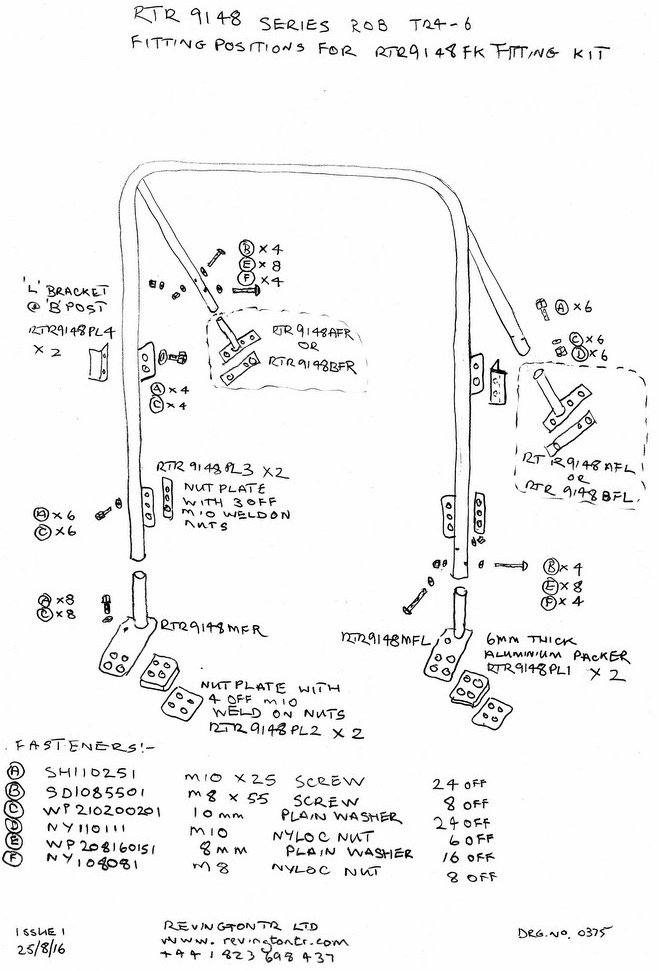 RTR 9148 SERIES ROB TR4-6
FITTING POSITIONS FOR RTR9148FK FITTING KIT
B × 4
E × 8
F × 4
'L' BRACKET
@ 'B' POST
RTR9148PL4
× 2
RTR9148AFR
OR
RTR9148BFR
A × 6
C × 6
D × 6
A × 4
C × 4
RTR9148AFL
OR
RTR 9148BFL
RTR 9148PL3 × 2
NUT PLATE
WITH 3 OFF
M10 WELD ON
NUTS
A × 6
C × 6
B × 4
E × 8
F × 4
A × 8
C × 8
RTR9148MFR
RTR9148MFL
6MM THICK
ALUMINIUM PACKER
RTR9148PL1 × 2
NUT PLATE WITH
4 OFF M10
WELD ON NUTS
RTR 9148PL2 × 2
FASTENERS:-
A SH110251 M10 × 25 SCREW 24 OFF
B SD1085501 M8 × 55 SCREW 8 OFF
C WP210200201 10mm PLAIN WASHER 24 OFF
D NY110111 M10 NYLOC NUT 6 OFF
E WP208160151 8mm PLAIN WASHER 16 OFF
F NY108081 M8 NYLOC NUT 8 OFF
ISSUE 1
25/8/16
REVINGTONTR LTD
www.revingtontr.com
+44 1823 698437
DRG.NO. 0375